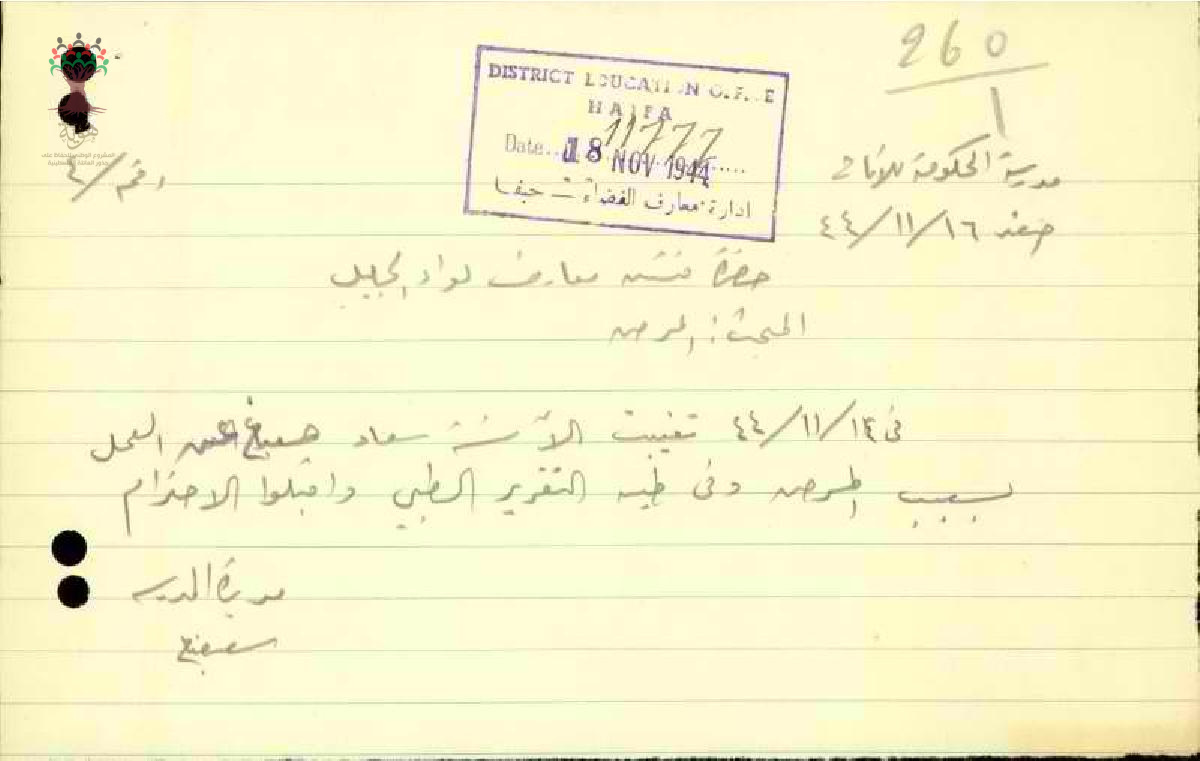 260
1
DISTRICT EDUCATION OFFICE
HAIFA
11777
Date... 18 NOV 1944
ادارة معارف القضاء – حيفا
مدرسة الحكومة للاناث
صفد ١٦/١١/٤٤
رقم/٤
حضرة مفتش معارف لواء الجليل
المبحث: المرض
في ١٤/١١/٤٤ تغيبت الآنسة سعاد عن العمل
بسبب المرض وفي طيه التقرير الطبي واقبلوا الاحترام
مديرة المدرسة